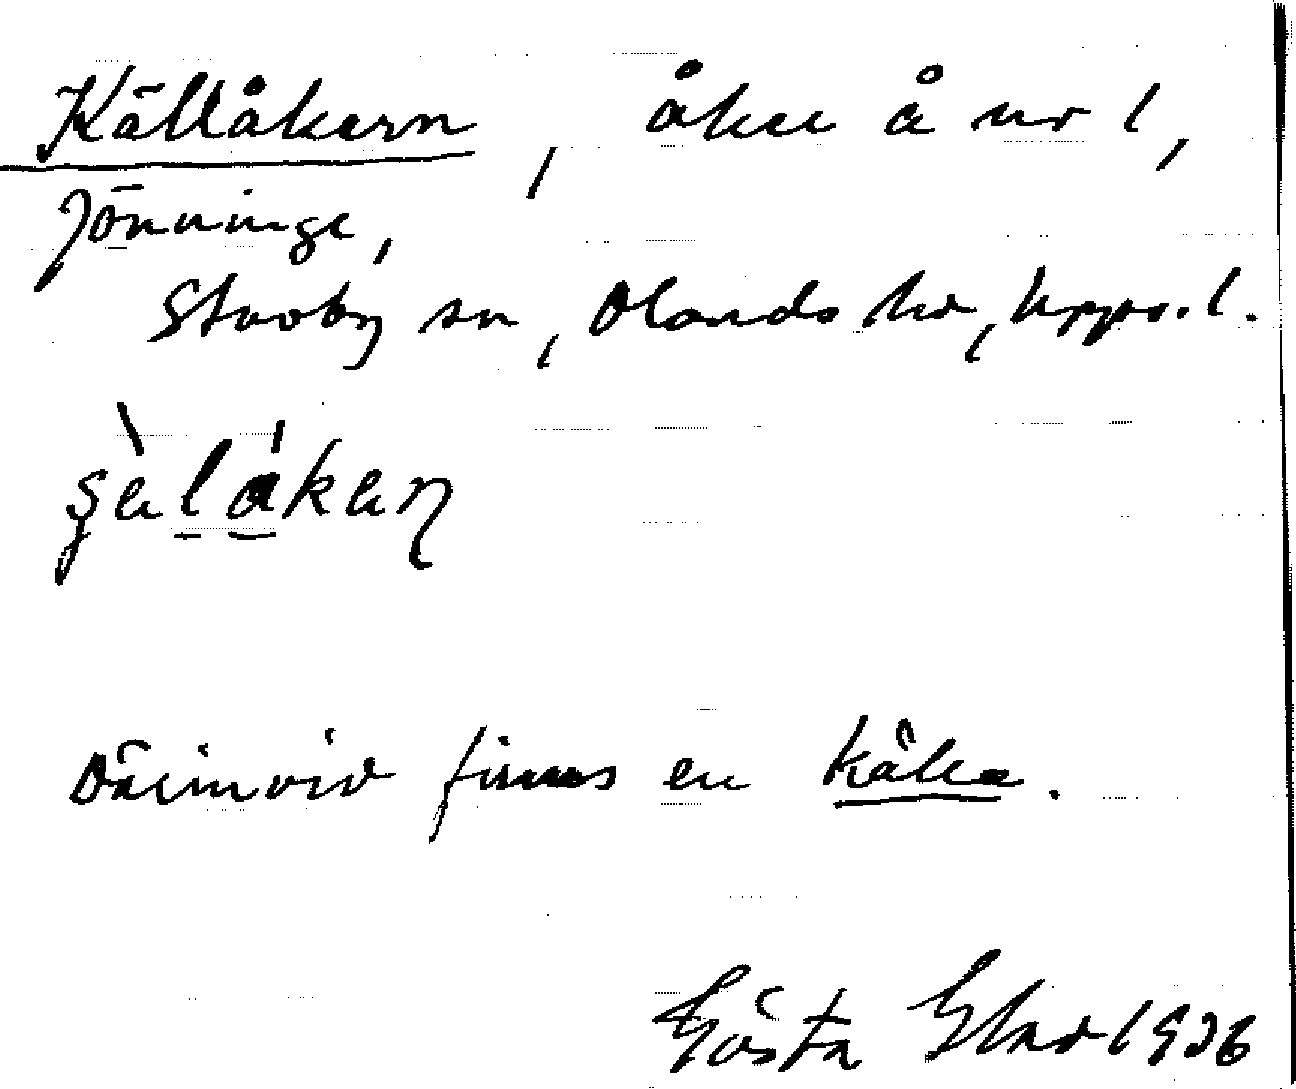 Källåkern, åker å nr 1,
Jönninge,
Stavby sn, Olands hd, Upps. l.
Därinvid finns en källa.
Gösta 1936